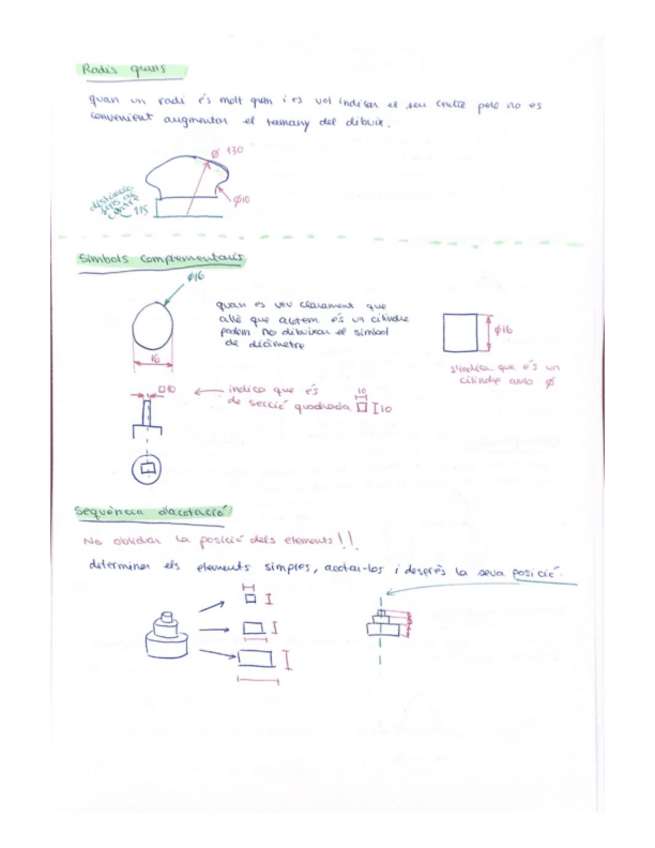 Radis grans
quan un radi és molt gran i es vol indicar el seu centre però no es
convenient augmentar el tamany del dibuix.
ø 130
ø10
distància
centre
115
Símbols complementaris
ø16
quan es veu clarament que
allò que acotem és un cilindre
podem no dibuixar el símbol
de diàmetre
16
ø16
s'indica que és un
cilindre amb ø
□10
indica que és
de secció quadrada
10
10
Seqüència d'acotació
No oblidar la posició dels elements!!
determinar els elements simples, acotar-los i després la seva posició.